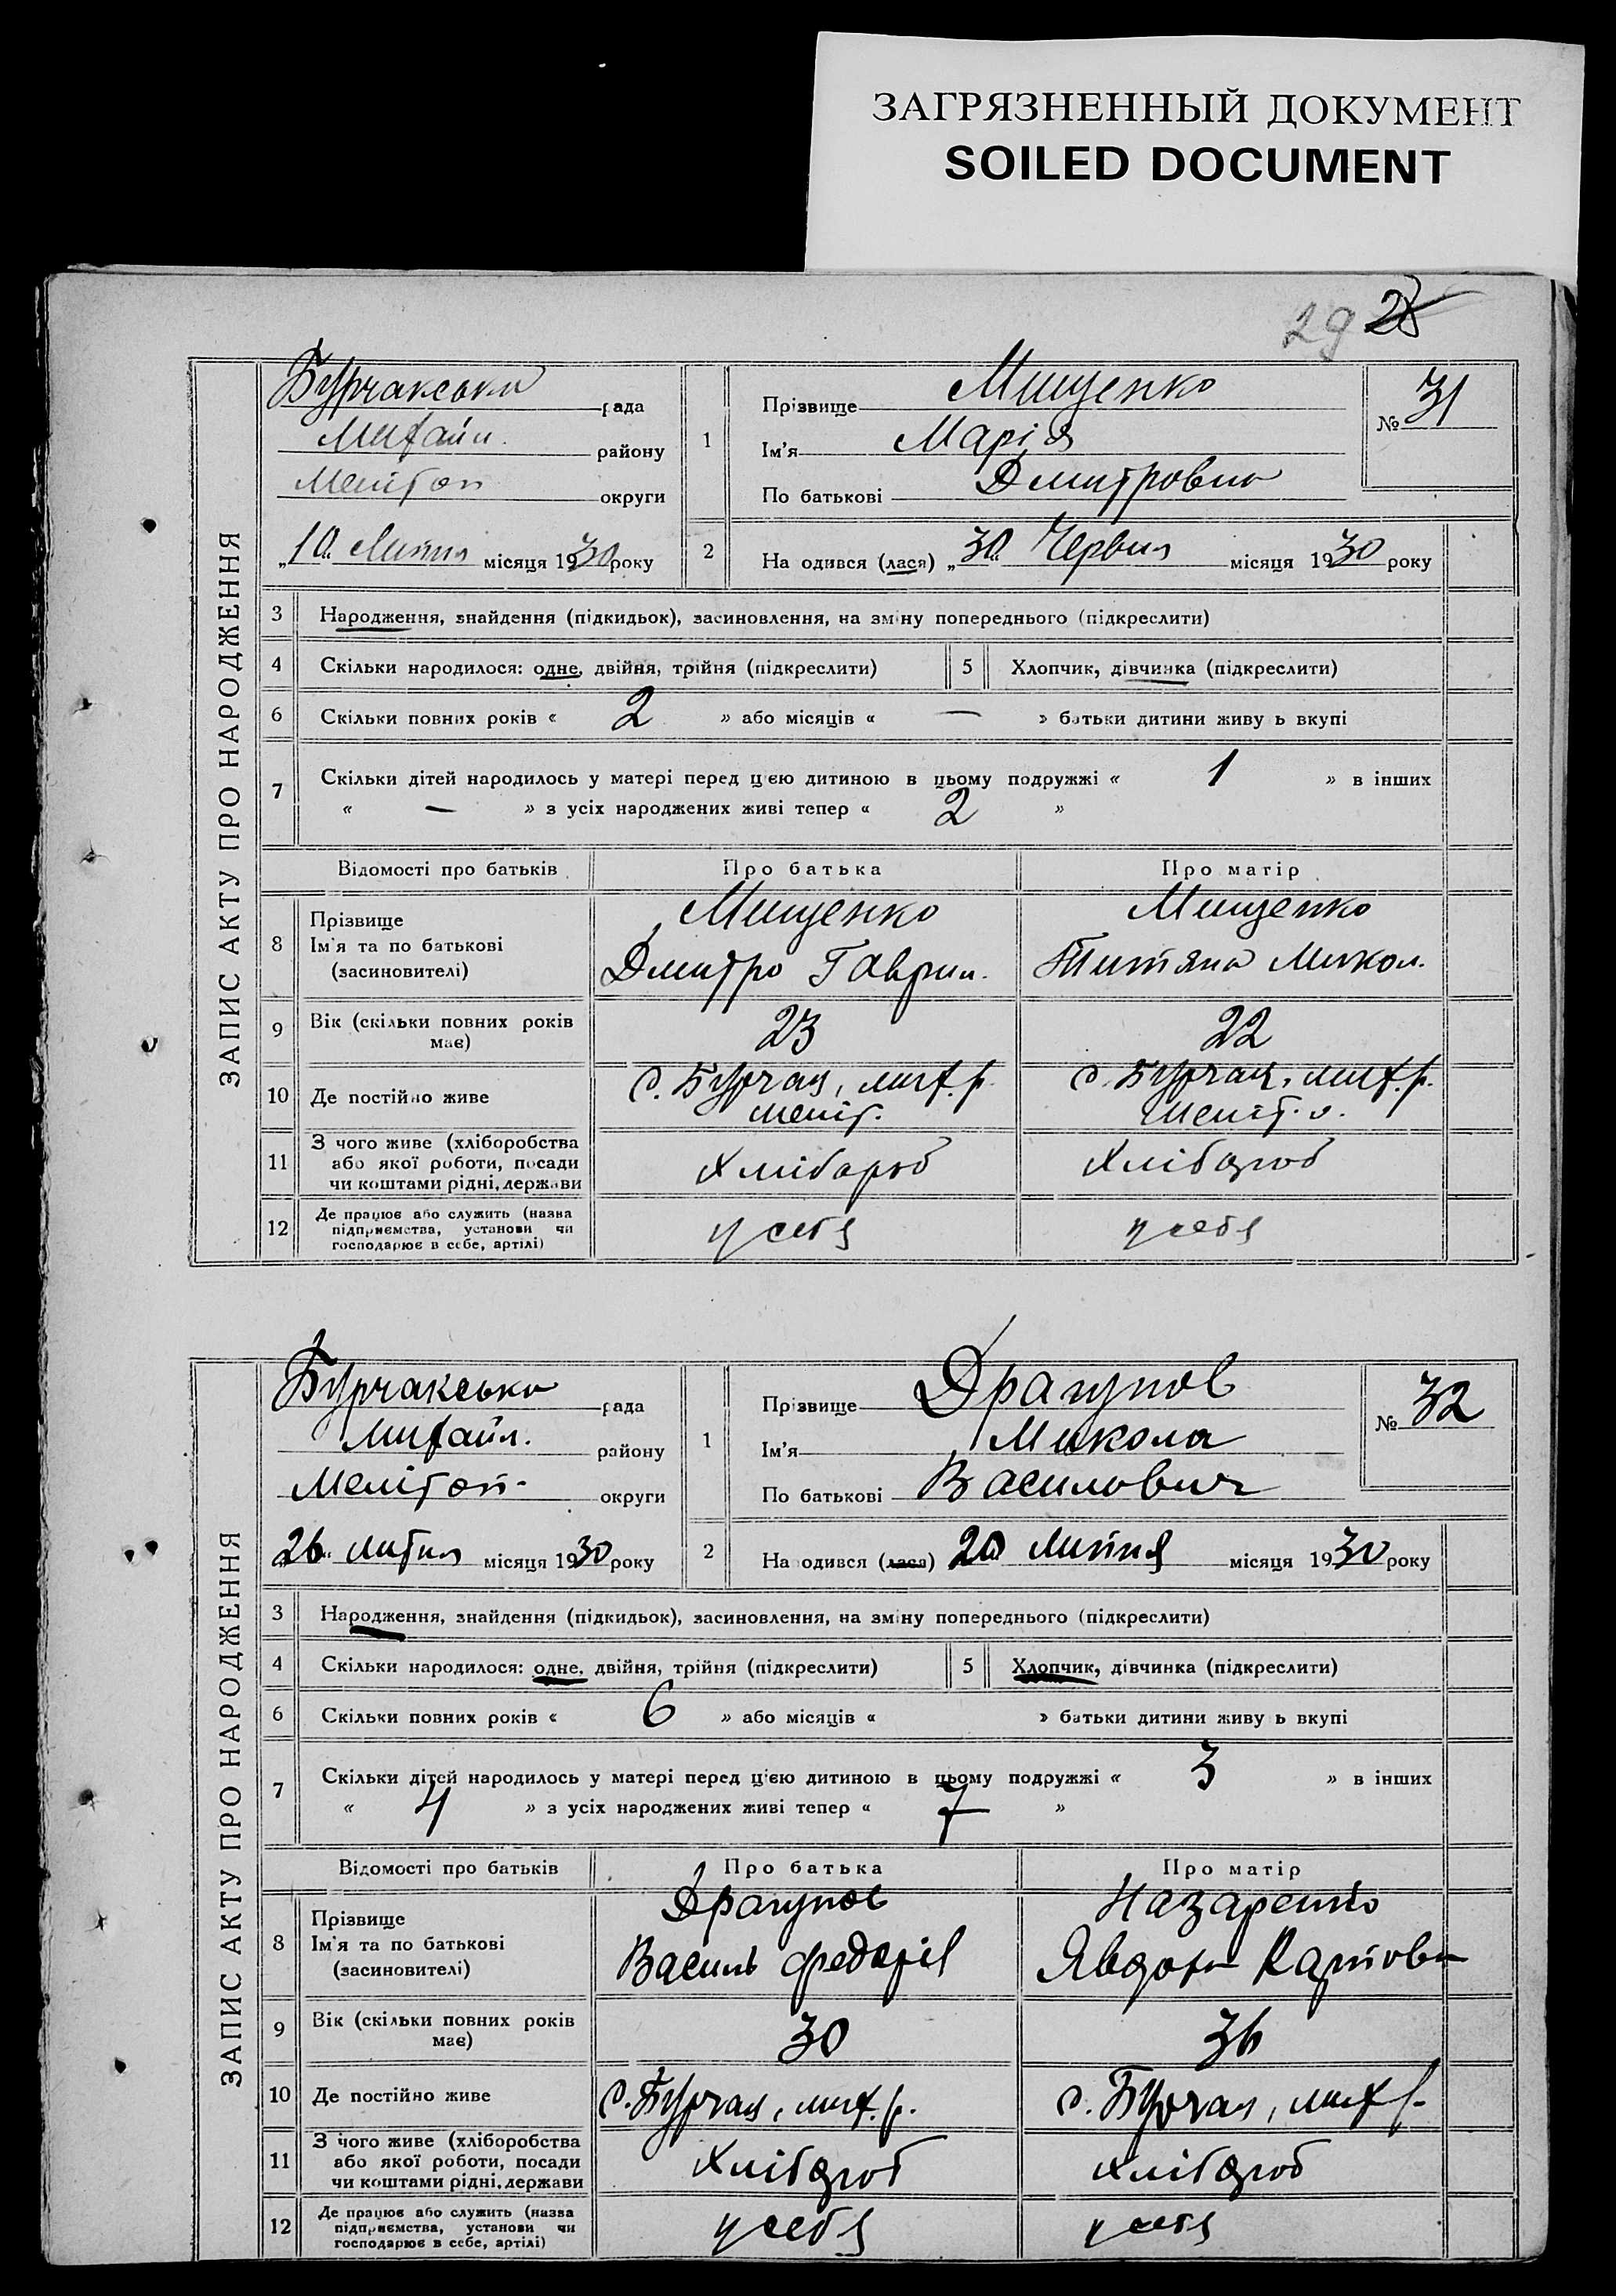 ЗАГРЯЗНЕННЫЙ ДОКУМЕНТ
SOILED DOCUMENT
29 28
ЗАПИС АКТУ ПРО НАРОДЖЕННЯ
Бурчакська рада
Михайл. району
Мелітоп округи
„10" Липня місяця 1930 року
1 Прізвище Мищенко
Ім'я Марія
По батькові Дмитровна
№ 31
2 На одився (лася) „30" Червня місяця 1930 року
3 Народження, знайдення (підкидьок), засиновлення, на зміну попереднього (підкреслити)
4 Скільки народилося: одне, двійня, трійня (підкреслити) 5 Хлопчик, дівчинка (підкреслити)
6 Скільки повних років « 2 » або місяців « — » батьки дитини живу ь вкупі
7 Скільки дітей народилось у матері перед цією дитиною в цьому подружжі « 1 » в інших
« — » з усіх народжених живі тепер « 2 »
Відомості про батьків Про батька Про матір
8 Прізвище Мищенко Мищенко
Ім'я та по батькові Дмитро Гаврил. Титяна Микол.
(засиновителі)
9 Вік (скільки повних років має) 23 22
10 Де постійно живе с. Бурчак, мих. р. Меліт. с. Бурчак, мих. р. Меліт. о.
11 З чого живе (хліборобства
або якої роботи, посади Хлібороб Хлібороб
чи коштами рідні, держави
12 Де працює або служить (назва
підприємства, установи чи у себя у себя
господарює в себе, артілі)
ЗАПИС АКТУ ПРО НАРОДЖЕННЯ
Бурчакська рада
Михайл. району
Мелітоп- округи
26 липня місяця 1930 року
1 Прізвище Драгунов
Ім'я Микола
По батькові Василович
№ 32
2 На одився (лася) 20 Липня місяця 1930 року
3 Народження, знайдення (підкидьок), засиновлення, на зміну попереднього (підкреслити)
4 Скільки народилося: одне, двійня, трійня (підкреслити) 5 Хлопчик, дівчинка (підкреслити)
6 Скільки повних років « 6 » або місяців « » батьки дитини живу ь вкупі
7 Скільки дітей народилось у матері перед цією дитиною в цьому подружжі « 3 » в інших
« 4 » з усіх народжених живі тепер « 7 »
Відомості про батьків Про батька Про матір
8 Прізвище Драгунов Назаренко
Ім'я та по батькові Василь Федорів Явдоха Карповн
(засиновителі)
9 Вік (скільки повних років має) 30 36
10 Де постійно живе с. Бурчак, мих. р. с. Бурчак, мих р.
11 З чого живе (хліборобства
або якої роботи, посади Хлібороб Хлібороб
чи коштами рідні, держави
12 Де працює або служить (назва
підприємства, установи чи у себя у себя
господарює в себе, артілі)